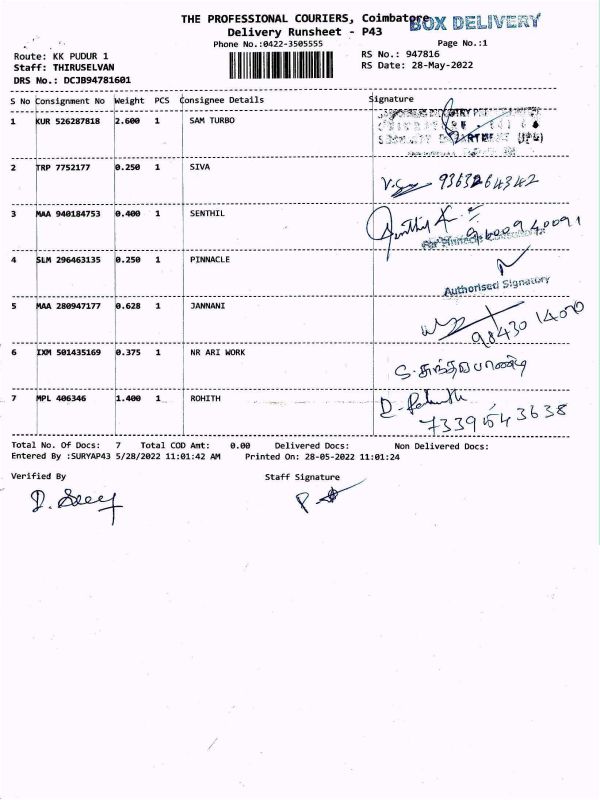 THE PROFESSIONAL COURIERS, Coimbatore
BOX DELIVERY
Delivery Runsheet - P43
Phone No.:0422-3505555
Page No.:1
Route: KK PUDUR 1
RS No.: 947816
Staff: THIRUSELVAN
RS Date: 28-May-2022
DRS No.: DCJB94781601
S No Consignment No Weight PCS Consignee Details Signature
1 KUR 526287818 2.600 1 SAM TURBO
2 TRP 7752177 0.250 1 SIVA
9363264342
3 MAA 940184753 0.400 1 SENTHIL
Senthil K
9600940091
4 SLM 296463135 0.250 1 PINNACLE
Authorised Signatory
5 MAA 280947177 0.628 1 JANNANI
98430 14070
6 IXM 501435169 0.375 1 NR ARI WORK
7 MPL 406346 1.400 1 ROHITH
7339543638
Total No. Of Docs: 7 Total COD Amt: 0.00 Delivered Docs: Non Delivered Docs:
Entered By :SURYAP43 5/28/2022 11:01:42 AM Printed On: 28-05-2022 11:01:24
Verified By Staff Signature